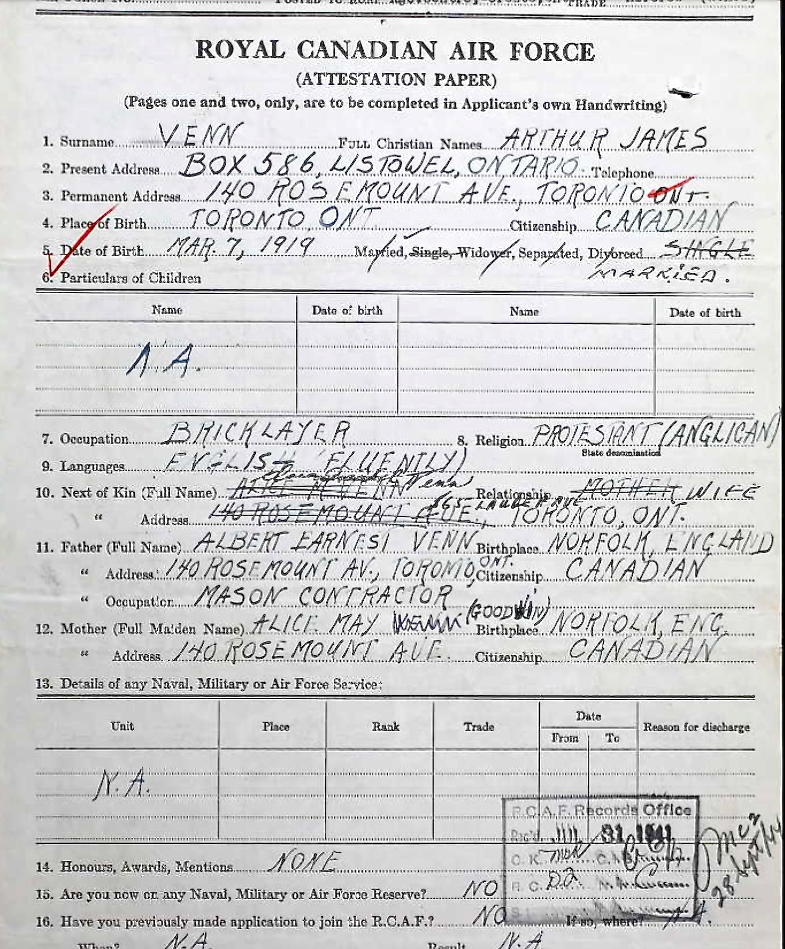 ROYAL CANADIAN AIR FORCE
(ATTESTATION PAPER)
(Pages one and two, only, are to be completed in Applicant's own Handwriting)
1. Surname VENN FULL Christian Names ARTHUR JAMES
2. Present Address BOX 586, LISTOWEL, ONTARIO. Telephone
3. Permanent Address 140 ROSEMOUNT AVE., TORONTO ONT.
4. Place of Birth TORONTO, ONT Citizenship CANADIAN
5. Date of Birth MAR. 7, 1919 Married, Single, Widower, Separated, Divorced SINGLE
MARRIED.
6. Particulars of Children
Name Date of birth Name Date of birth
N.A.
7. Occupation BRICKLAYER 8. Religion PROTESTANT (ANGLICAN)
State denomination
9. Languages ENGLISH (FLUENTLY)
10. Next of Kin (Full Name) ALICE M VENN Venn Relationship MOTHER WIFE
" Address 140 ROSEMOUNT AVE., TORONTO, ONT.
11. Father (Full Name) ALBERT EARNEST VENN Birthplace NORFOLK, ENGLAND
" Address 140 ROSEMOUNT AV., TORONTO, ONT. Citizenship CANADIAN
" Occupation MASON CONTRACTOR
12. Mother (Full Maiden Name) ALICE MAY (GOODWIN) Birthplace NORFOLK, ENG.
" Address 140 ROSEMOUNT AVE. Citizenship CANADIAN
13. Details of any Naval, Military or Air Force Service:
Unit Place Rank Trade Date Reason for discharge
From To
N.A.
R.C.A.F. Records Office
Rec'd JUL 31 1941
28 Sept/44
14. Honours, Awards, Mentions NONE
15. Are you now on any Naval, Military or Air Force Reserve? NO
16. Have you previously made application to join the R.C.A.F.? NO If so, where? N.A.
When? N.A. Result N.A.